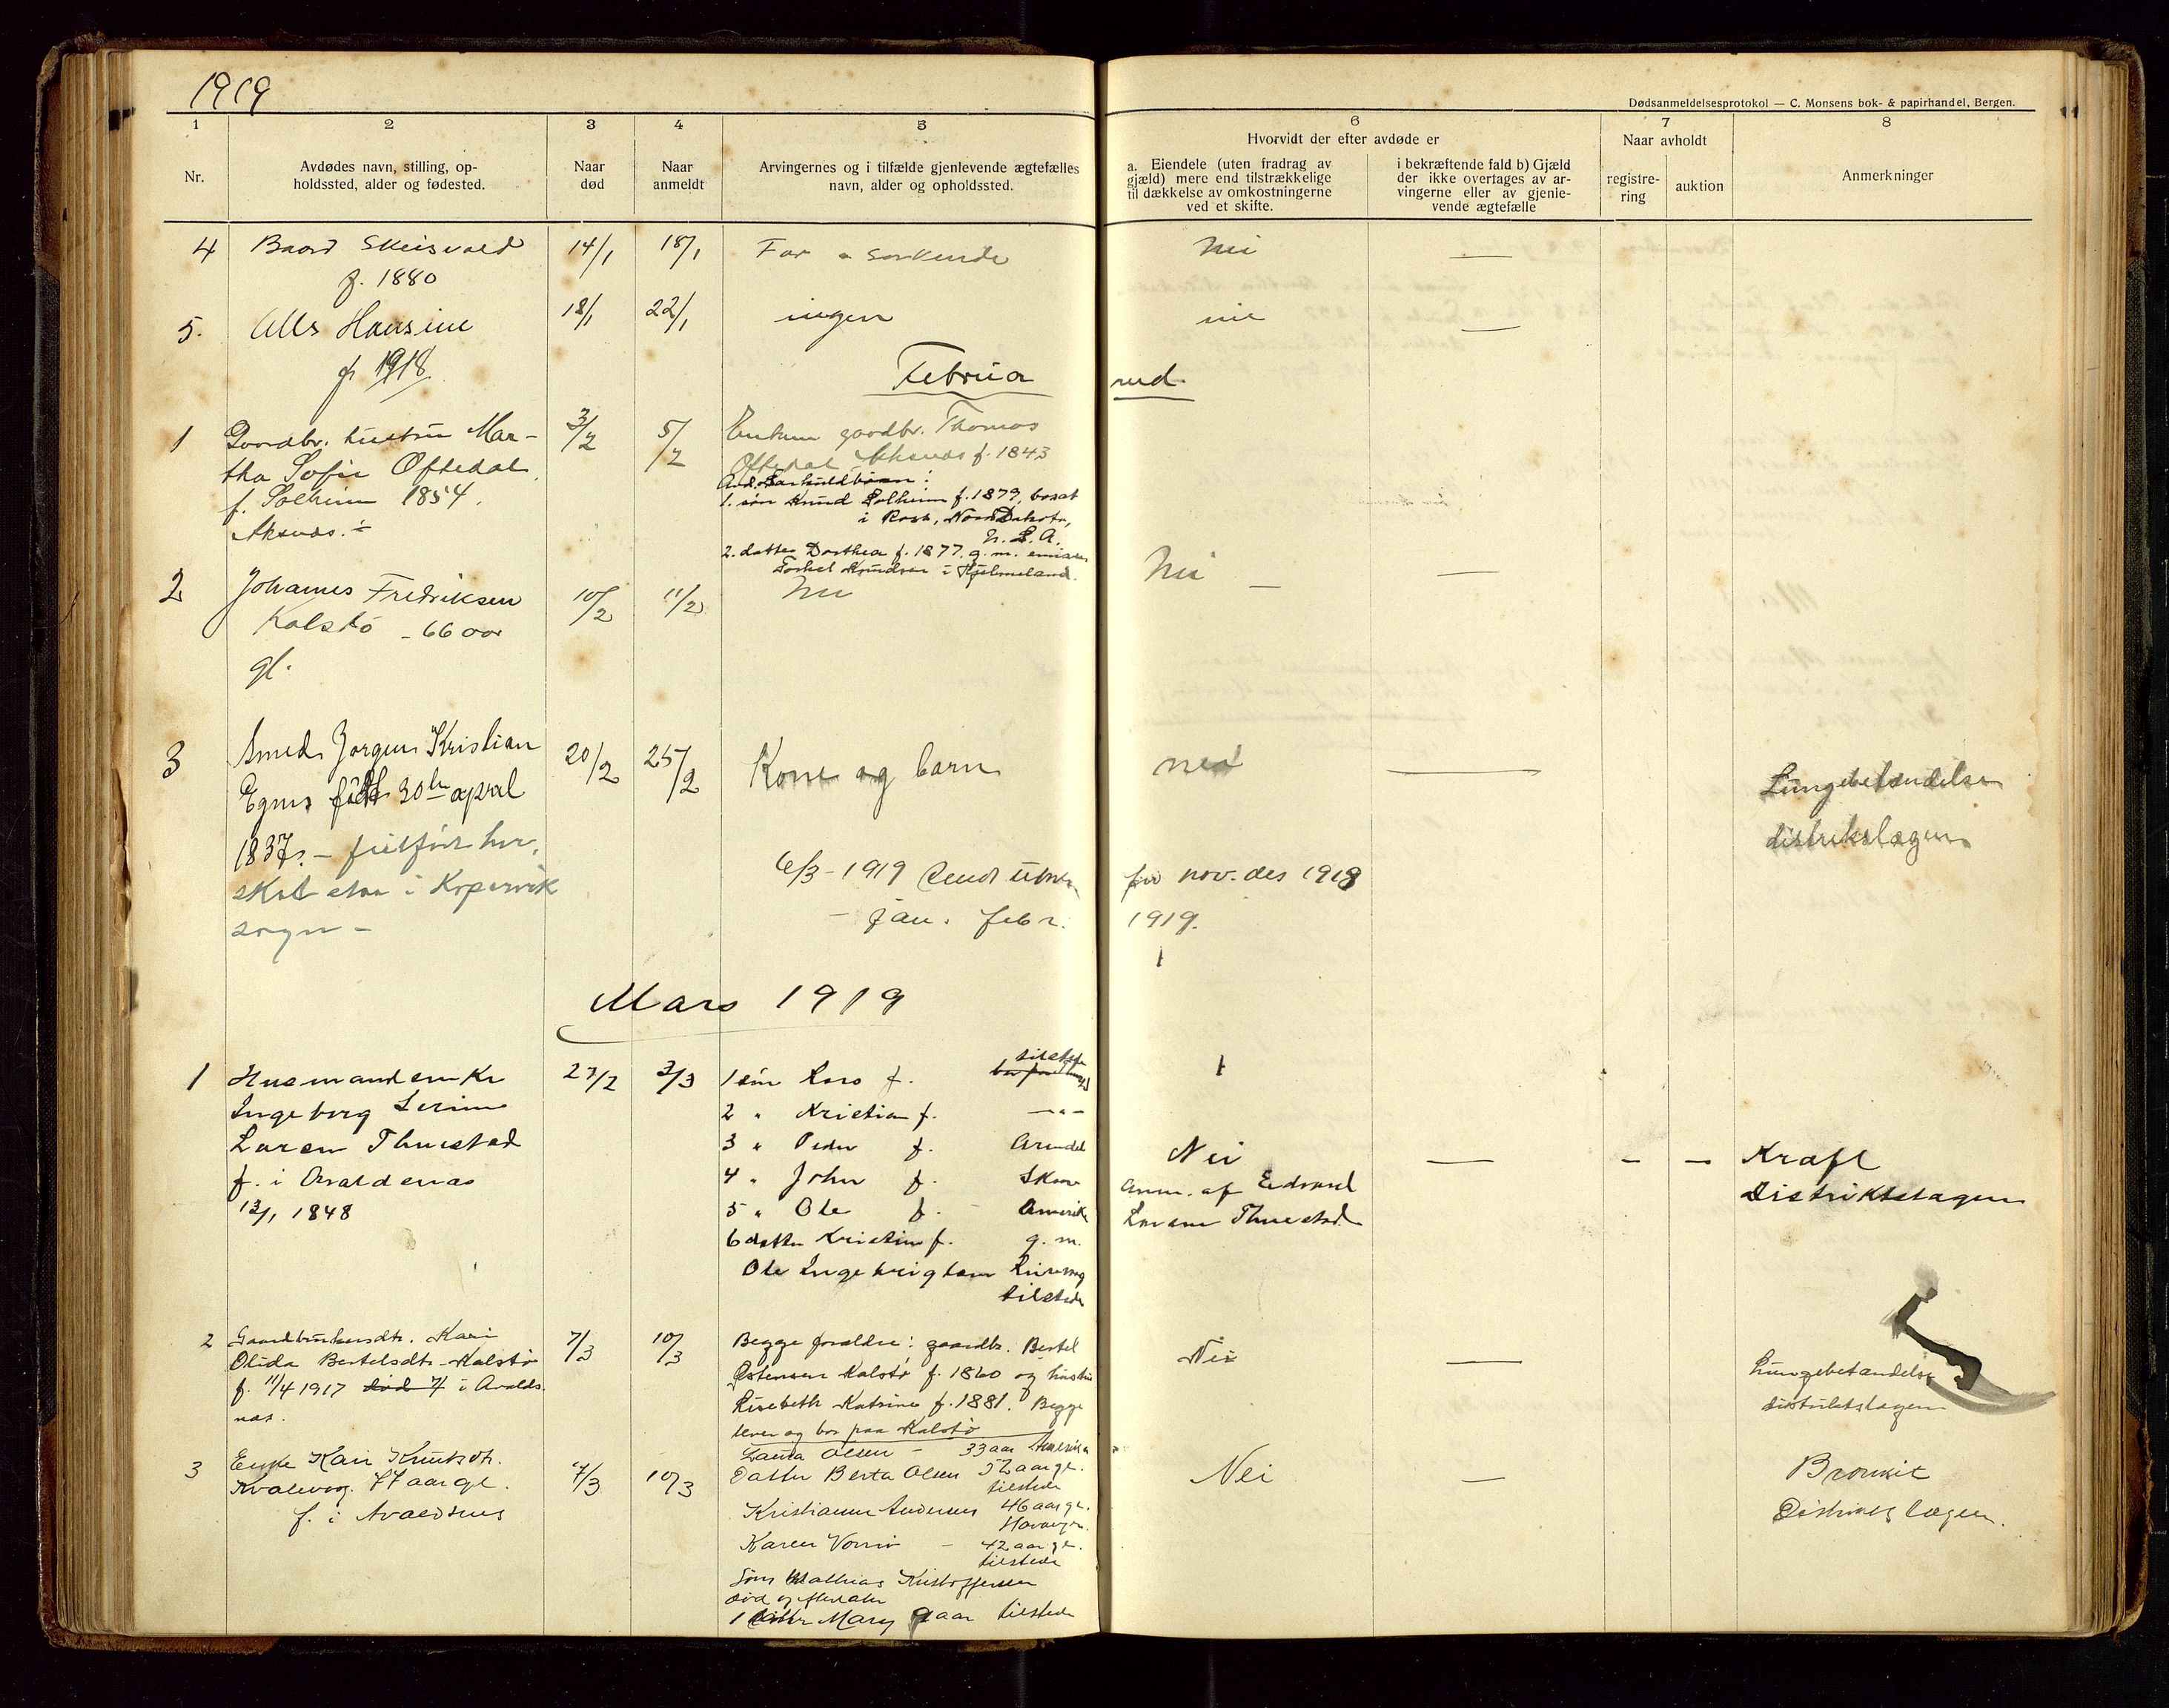 1919
Dødsanmeldelsesprotokol — C. Monsens bok- & papirhandel, Bergen.
1 2 3 4 5 6 7 8
Nr.
Avdødes navn, stilling, op-
holdssted, alder og fødested.
Naar
død
Naar
anmeldt
Arvingernes og i tilfælde gjenlevende ægtefælles
navn, alder og opholdssted.
Hvorvidt der efter avdøde er
a. Eiendele (uten fradrag av
gjæld) mere end tilstrækkelige
til dækkelse av omkostningerne
ved et skifte.
i bekræftende fald b) Gjæld
der ikke overtages av ar-
vingerne eller av gjenle-
vende ægtefælle
Naar avholdt
registre-
ring
auktion
Anmerkninger
4 Baard 14/1 18/1 Far søskende nei —
f. 1880
5. Hansine 18/1 22/1 ingen nei —
f. 1918
Februar
1 Gaardbr. hustru Mar- 3/2 5/2 gaardbr. Thomas
tha Sofie Oftedal Oftedal f. 1843
f. Solheim 1854.
1. søn Knud Solheim f. 1879, bosat
i Ross, Nord Dakota,
2. datter Dorthea f. 1877. g. m.
Knudsen i Hjelmeland.
2 Johannes Fredriksen 10/2 11/2 Nei — —
Kalstø - 66 aar
gl.
3 Smed Jørgen Kristian 20/2 25/2 Kone og barn nei — Lungebetændelse
født 30te april distriktslægen
1837.
i Kopervik
sogn -
6/3 - 1919 Sendt for nov. des 1918
- jan. febr. 1919.
Mars 1919
1 27/2 3/3 1 søn Lars f. tilstede
Ingeborg Serine 2 " Kristian f. — " —
Larsen Thuestad 3 " Peder f. Arendal Nei — - - Kraft
f. i Avaldsnes 4 " John f. Anm. af Edvard Distriktslægen
13/1 1848 5 " Ole f. - Amerika Larsen Thuestad
6 datter Kristine f. g. m.
Ole Ingebrigtsen
tilstede
2 Kari 7/3 10/3 Begge forældre: gaardbr. Bertel Nei — Lungebetændelse
Olida Bertelsdtr. Kalstø Østensen Kalstø f. 1860 og hustru distriktslægen
f. 11/4 1917 død i Avalds-
nes.
Lisebeth Katrine f. 1881. Begge
lever og bor paa Kalstø
3 Enke Kari Knutsdtr. Laura Olsen - 33 aar Amerika
Kvalevog. 77 aar gl. 7/3 10/3 Datter Berta Olsen 52 aar gl. Nei — Bronkit
f. i Avaldsnes tilstede Distriktslægen.
Kristianne Andersen 46 aar gl.
Karen - 42 aar gl.
tilstede
Søn Mathias Kristoffersen
død og efterlater
1 datter Mary 9 aar tilstede